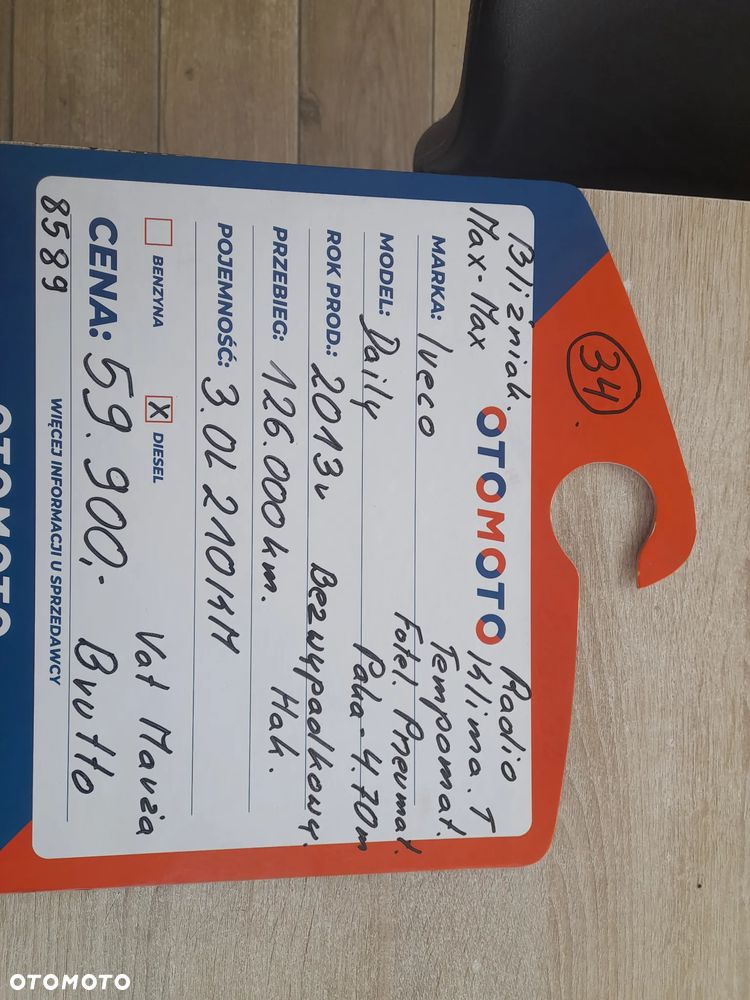 34
Bliźniak.
Max-Max
OTOMOTO
Radio
Klima. T
Tempomat.
MARKA: Iveco
Fotel. Pneumat.
MODEL: Daily
Paka - 4.70m
ROK PROD.: 2013r Bezwypadkowy.
PRZEBIEG: 126.000km. Hak.
POJEMNOŚĆ: 3.0L 210KM
BENZYNA X DIESEL
Vat Marża
CENA: 59.900,- Brutto
8589 WIĘCEJ INFORMACJI U SPRZEDAWCY
OTOMOTO
OTOMOTO